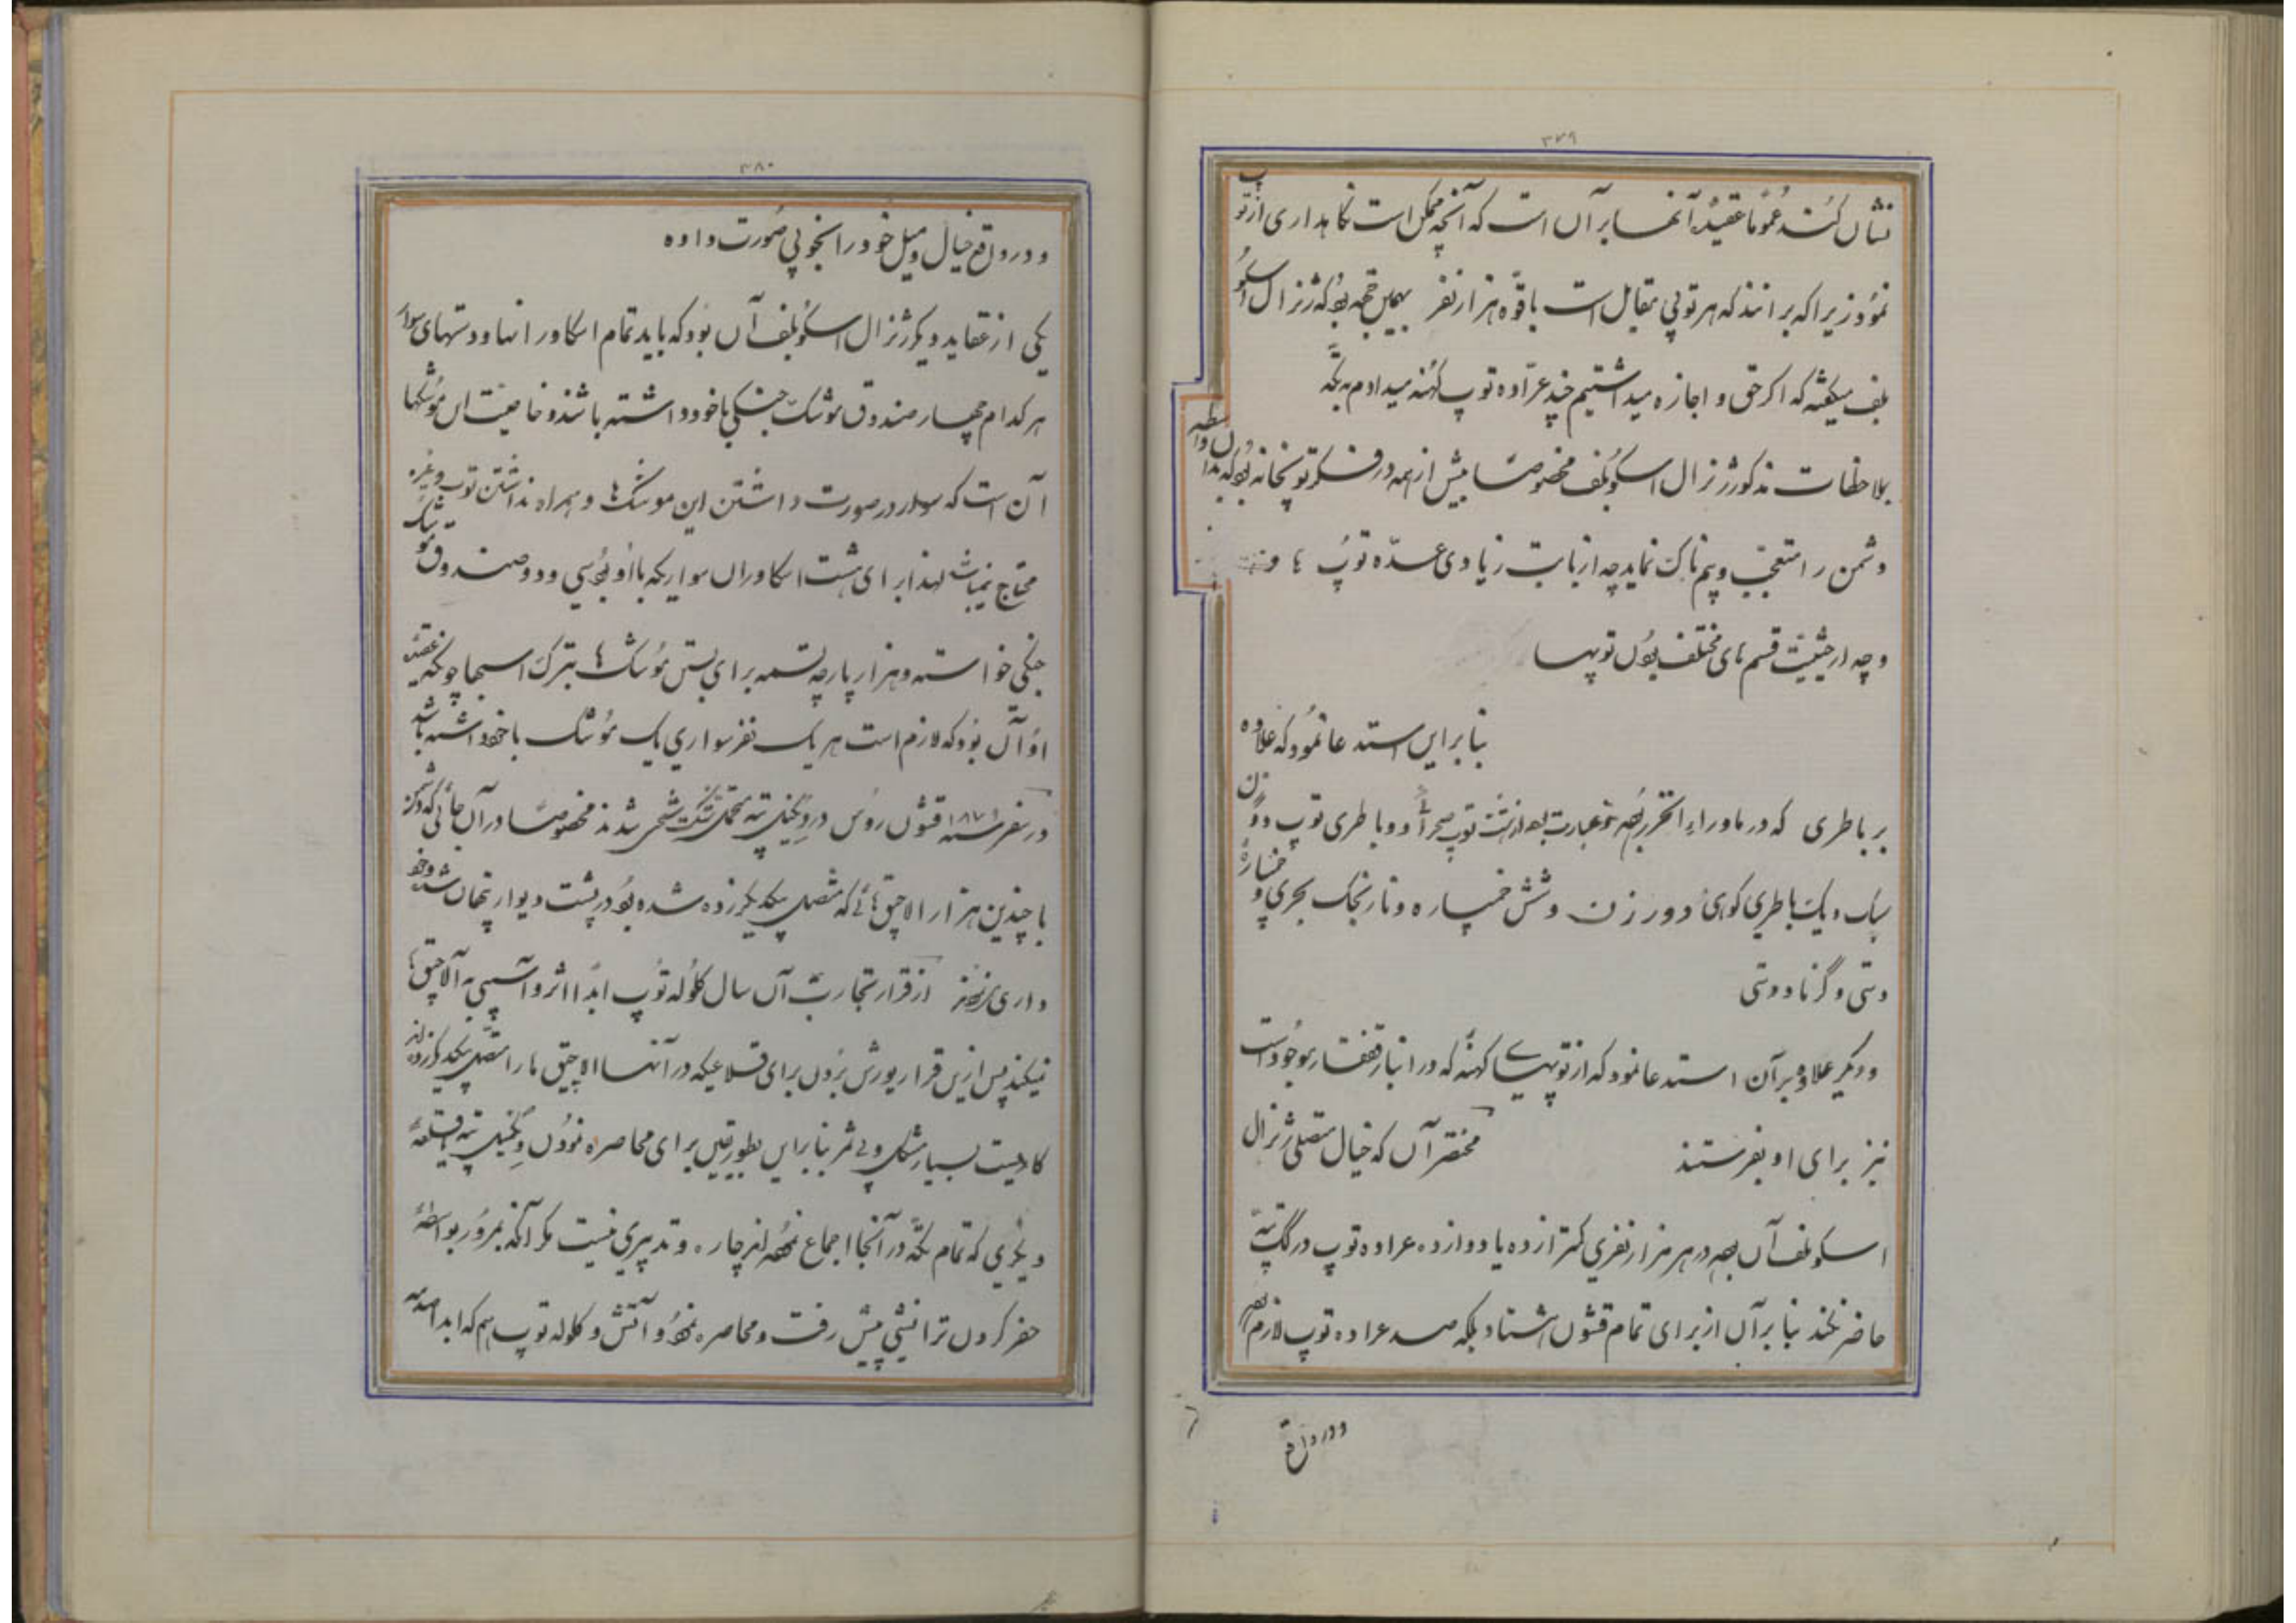 ۳۷۹
نشان کنند عموماً عقیدهٔ آنها بر آن است که آنچه ممکن است نگاهداری از توپ
نمود زیرا که برانند که هر توپی مقابل است با قوّه هزار نفر بهمین جهة بود که ژنرال اسکو
بلف میگفته که اگر حق و اجازه میداشتیم چند عرّاده توپ کهنه میدادم به تکّه
بملاحظات مذکور ژنرال اسکوبلف مخصوصاً بیش از همه در فکر توپخانه بود که بدان واسطه
دشمن را متعجّب و بیم ناک نماید چه از بابت زیادی عدّه توپ ها و
و چه از حیثیّت قسم های مختلف بودن توپها
بنا بر این استدعا نمود که علاوه
بر باطری که در ماوراء بحر خزر بود عبارت بود از هشت توپ صحرائی و دو باطری توپ دورزن
سبک و یک باطری کوهی دور زن و شش خمپاره و نارنجک بحری و خمپارهٔ
دستی و گرناد دستی
و دیگر علاوه بر آن استدعا نمود که از توپهای کهنه که در انبار قفقاز موجود است
نیز برای او بفرستند مختصر آن که خیال متصلی ژنرال
اسکوبلف آن بود در هر هزار نفری کمتر از ده یا دوازده عراده توپ در گگ تپه
حاضر نکند بنا بر آن از برای تمام قشون هشتاد بلکه صد عراده توپ لازم بود
و در واقع
۳۸۰
و در واقع خیال و میل خود را بخوبی صورت داده
یکی از عقاید دیگر ژنرال اسکوبلف آن بود که باید تمام اسکادرانها و دستهای سوار
هر کدام چهار صندوق موشک جنگی با خود داشته باشند و خاصیت این موشکها
آن است که سوار در صورت داشتن این موشک ها و همراه نداشتن توپ و غیره
محتاج نمیباشد لهذا برای هشت اسکادران سواریکه با او بود سی و دو صندوق موشک
جنگی خواسته و هزار پارچه تسمه برای بستن موشک ها بترک اسبها چونکه عقیده
او آن بود که لازم است هر یک نفر سواری یک موشک با خود داشته باشد
در سفر سنه ۱۸۷۹ قشون روس در دنگیل تپه متحمل شکست فاحشی شدند مخصوصاً در آن جائی که دشمن
با چندین هزار الاچیق هائی که متصل بیکدیگر زده شده بود در پشت دیوار پنهان شده و خود
داری نمودند از قرار تجاربت آن سال گلوله توپ ابداً اثر و آسیبی به آلاچیق ها
نمیکند پس ازین قرار یورش بردن برای قلاعیکه در آنها الاچیق ها را متصل بیکدیگر زده اند
کاریست بسیار مشکل و بی ثمر بنا بر این بطور یقین برای محاصره نمودن دنگیل تپه یا قلعهٔ
دیگری که تمام تکّه در آنجا اجماع نموده اند چاره و تدبیری نیست مگر آنکه بمرور بواسطهٔ
حفر کردن ترانشی پیش رفت و محاصره نمود و آتش و گلوله توپ هم که ابدا صدمه